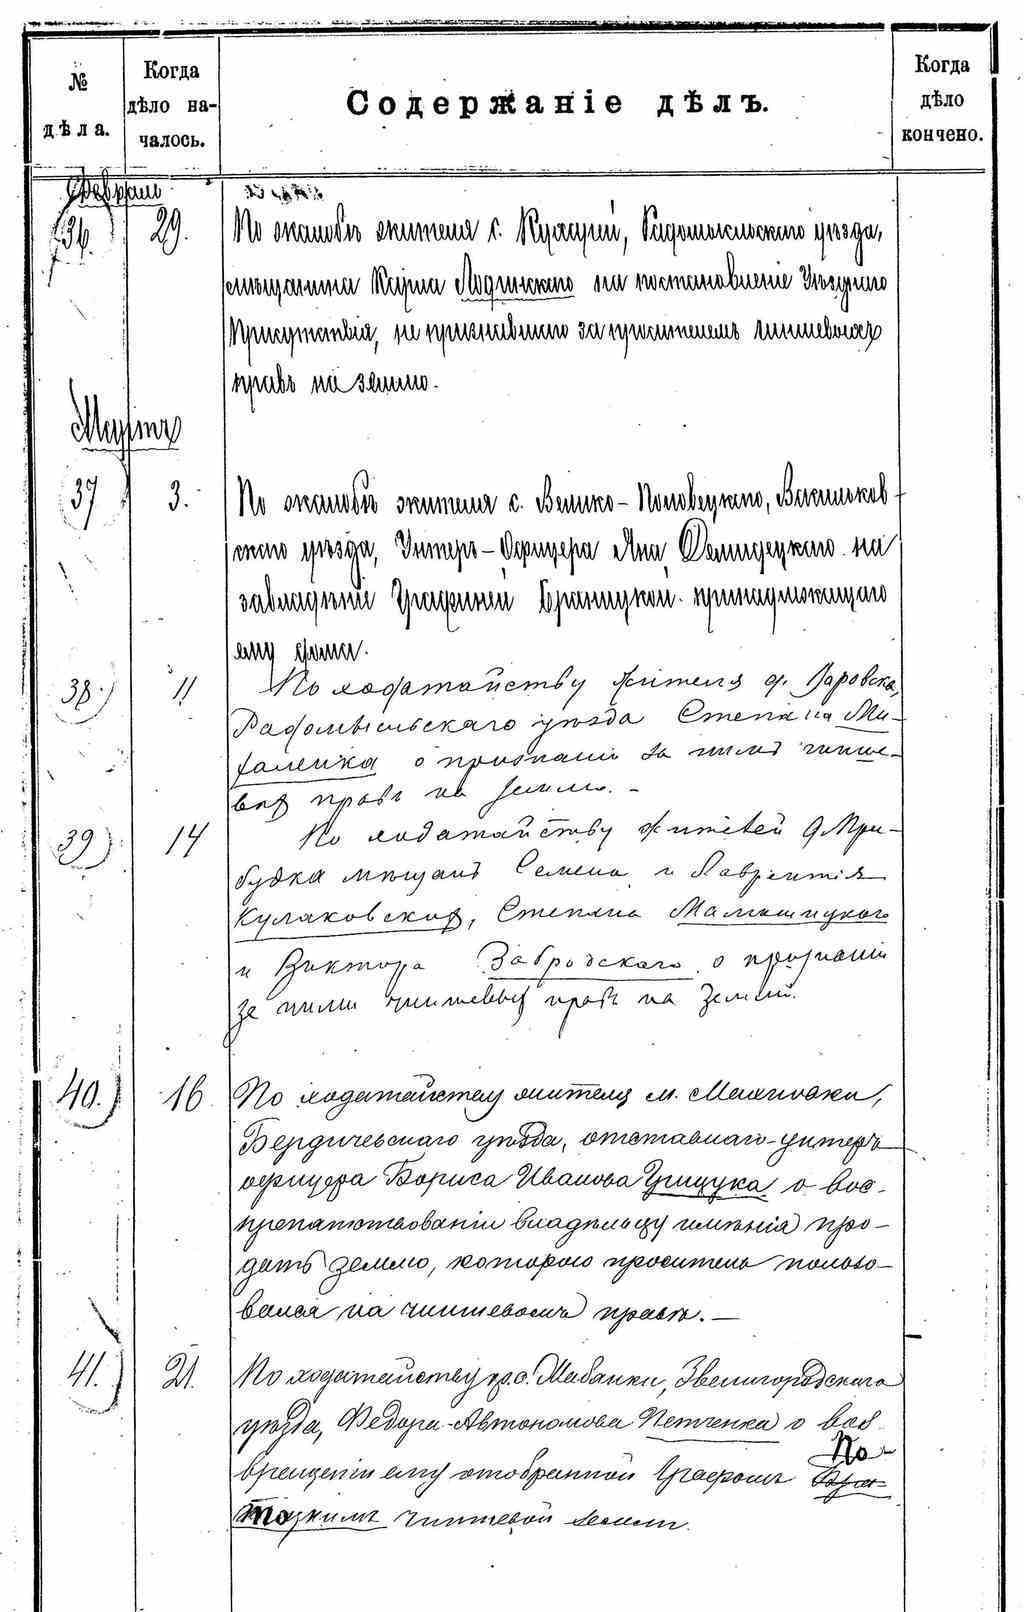 № дѣла.
Когда дѣло началось.
Содержаніе дѣлъ.
Когда дѣло кончено.
Февраля
36. 29. По жалобѣ жителя с. Кухарей, Радомысльскаго уѣзда,
мѣщанина Карла Лодинскаго на постановленіе Уѣзднаго
Присутствія, не признавшаго за просителемъ чиншевыхъ
правъ на землю.
Мартъ
37 3. По жалобѣ жителя с. Велико-Половецкаго, Васильков-
скаго уѣзда, Унтеръ-Офицера Яна Демидецкаго на
завладѣніе Графиней Браницкой принадлежащаго
ему дома.
38. 11 По ходатайству жителя д. Варовска,
Радомысльскаго уѣзда Степана Ми-
халенка о признаніи за нимъ чинше-
выхъ правъ на землю. -
39) 14 По ходатайству жителей д. При-
будка мѣщанъ Семена и Лаврентія
Кулаковскихъ, Степана
и Виктора Забродскаго о признаніи
за ними чиншевыхъ правъ на землю.
40.) 16 По ходатайству жителя м. Махновки,
Бердичевскаго уѣзда, отставнаго унтеръ-
офицера Бориса Иванова Грищука о вос-
препятствованіи владѣльцу имѣнія про-
дать землю, которою проситель пользо-
вался на чиншевомъ правѣ. —
41.) 21. По ходатайству кр. с. Звенигородскаго
уѣзда, Федора Автономова Петченка о воз-
вращеніи ему отобранной Графомъ По-
тоцкимъ чиншевой земли.